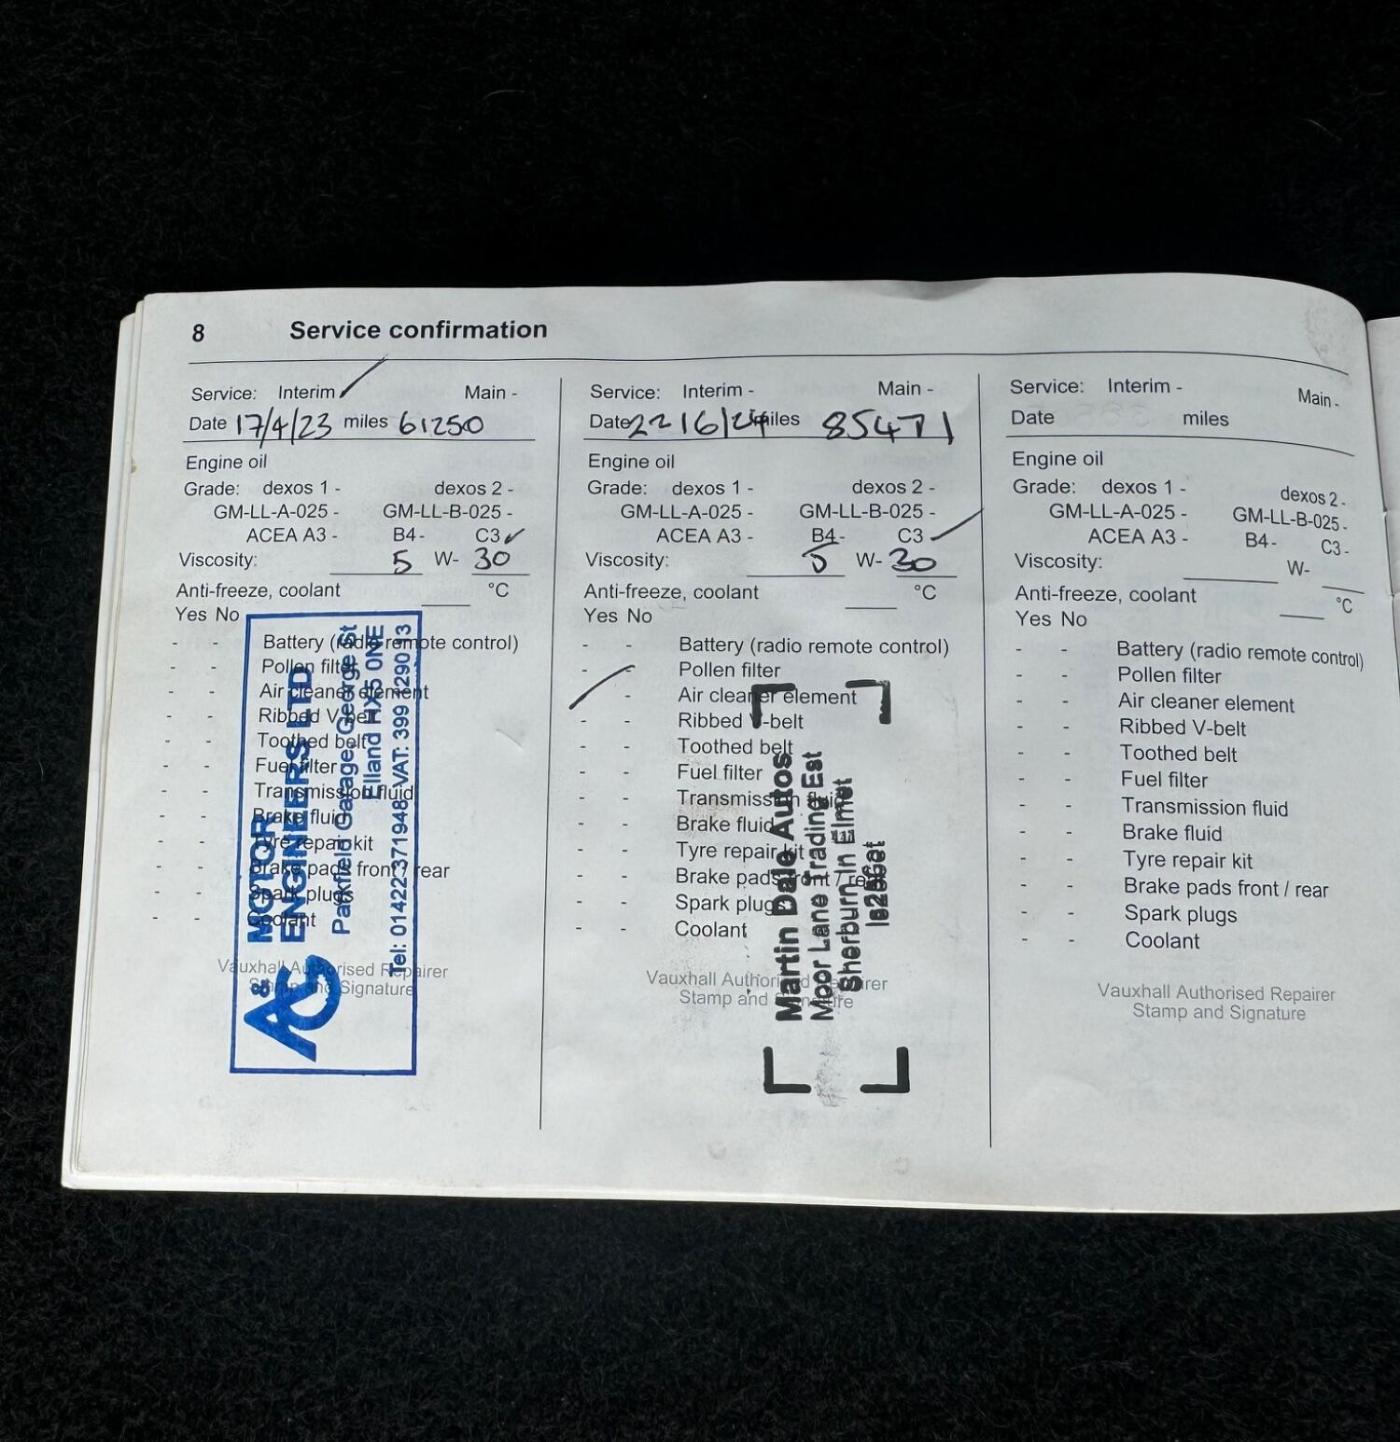 8 Service confirmation
Service: Interim ✓ Main -
Date 17/4/23 miles 61250
Engine oil
Grade: dexos 1 - dexos 2 -
GM-LL-A-025 - GM-LL-B-025 -
ACEA A3 - B4 - C3 ✓
Viscosity: 5 W- 30
Anti-freeze, coolant °C
Yes No
- - Battery (radio remote control)
- - Pollen filter
- - Air cleaner element
- - Ribbed V-belt
- - Toothed belt
- - Fuel filter
- - Transmission fluid
- - Brake fluid
- - Tyre repair kit
- - Brake pads front / rear
- - Spark plugs
- - Coolant
Vauxhall Authorised Repairer
Stamp and Signature
A&G MOTOR
ENGINEERS LTD
Parkfield Garage, George St
Elland HX5 0NE
Tel: 01422 371948 VAT: 399 1290 13
Service: Interim - Main -
Date 22/6/24 miles 85471
Engine oil
Grade: dexos 1 - dexos 2 -
GM-LL-A-025 - GM-LL-B-025 -
ACEA A3 - B4 - C3 ✓
Viscosity: 5 W- 30
Anti-freeze, coolant °C
Yes No
- - Battery (radio remote control)
- - Pollen filter
✓ - Air cleaner element
- - Ribbed V-belt
- - Toothed belt
- - Fuel filter
- - Transmission fluid
- - Brake fluid
- - Tyre repair kit
- - Brake pads front / rear
- - Spark plugs
- - Coolant
Vauxhall Authorised Repairer
Stamp and Signature
Martin Dale Autos
Moor Lane Trading Est
Sherburn in Elmet
Service: Interim - Main -
Date miles
Engine oil
Grade: dexos 1 - dexos 2 -
GM-LL-A-025 - GM-LL-B-025 -
ACEA A3 - B4 - C3 -
Viscosity: W-
Anti-freeze, coolant °C
Yes No
- - Battery (radio remote control)
- - Pollen filter
- - Air cleaner element
- - Ribbed V-belt
- - Toothed belt
- - Fuel filter
- - Transmission fluid
- - Brake fluid
- - Tyre repair kit
- - Brake pads front / rear
- - Spark plugs
- - Coolant
Vauxhall Authorised Repairer
Stamp and Signature